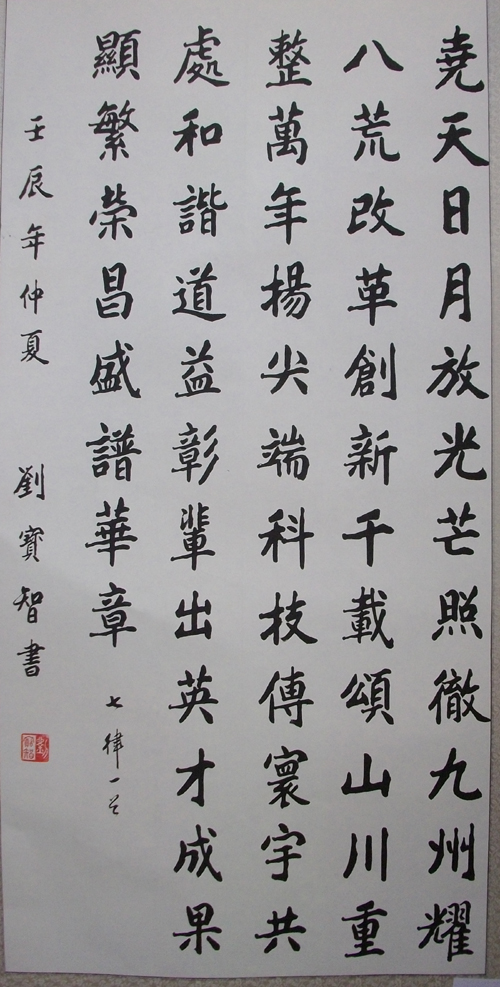 堯天日月放光芒照徹九州耀
八荒改革創新千載頌山川重
整萬年揚尖端科技傳寰宇共
處和諧道益彰輩出英才成果
顯繁榮昌盛譜華章
七律一首
壬辰年仲夏 劉寶智書